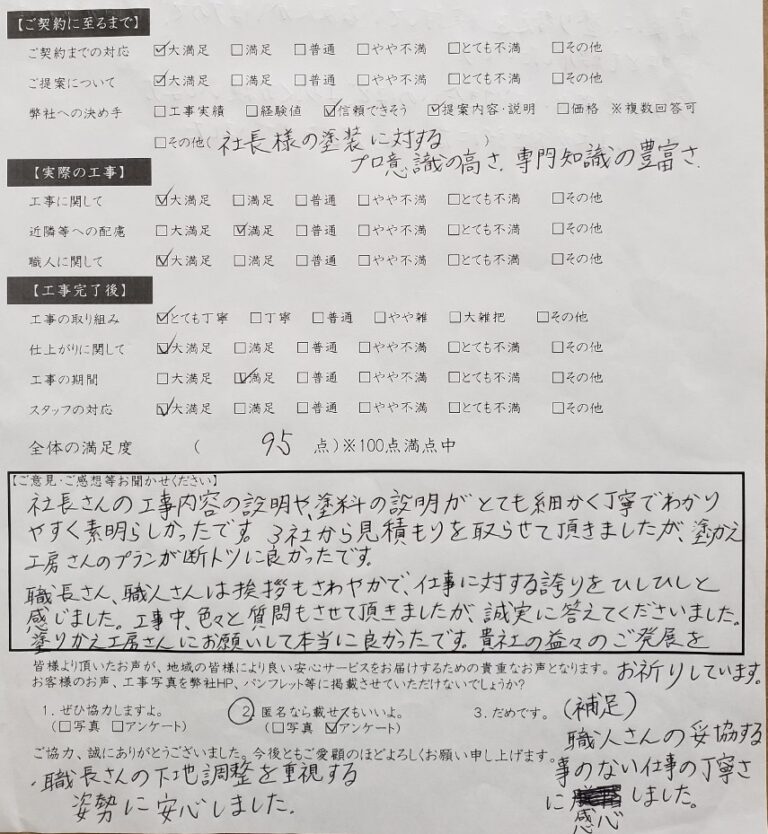 【ご契約に至るまで】
ご契約までの対応 ☑大満足 □満足 □普通 □やや不満 □とても不満 □その他
ご提案について ☑大満足 □満足 □普通 □やや不満 □とても不満 □その他
弊社への決め手 □工事実績 □経験値 ☑信頼できそう ☑提案内容・説明 □価格 ※複数回答可
□その他( 社長様の塗装に対する )
プロ意識の高さ、専門知識の豊富さ、
【実際の工事】
工事に関して ☑大満足 □満足 □普通 □やや不満 □とても不満 □その他
近隣等への配慮 □大満足 ☑満足 □普通 □やや不満 □とても不満 □その他
職人に関して ☑大満足 □満足 □普通 □やや不満 □とても不満 □その他
【工事完了後】
工事の取り組み ☑とても丁寧 □丁寧 □普通 □やや雑 □大雑把 □その他
仕上がりに関して ☑大満足 □満足 □普通 □やや不満 □とても不満 □その他
工事の期間 □大満足 ☑満足 □普通 □やや不満 □とても不満 □その他
スタッフの対応 ☑大満足 □満足 □普通 □やや不満 □とても不満 □その他
全体の満足度 ( 95 点)※100点満点中
【ご意見・ご感想等お聞かせください】
社長さんの工事内容の説明や、塗料の説明がとても細かく丁寧でわかり
やすく素晴らしかったです。3社から見積もりを取らせて頂きましたが、塗りかえ
工房さんのプランが断トツに良かったです。
職長さん、職人さんは挨拶もさわやかで、仕事に対する誇りをひしひしと
感じました。工事中、色々と質問もさせて頂きましたが、誠実に答えてくださいました。
塗りかえ工房さんにお願いして本当に良かったです。貴社の益々のご発展を
お祈りしています。
皆様より頂いたお声が、地域の皆様により良い安心サービスをお届けするための貴重なお声となります。
お客様のお声、工事写真を弊社HP、パンフレット等に掲載させていただけないでしょうか?
1. ぜひ協力しますよ。 2. 匿名なら載せてもいいよ。 3. だめです。
(□写真 □アンケート) (□写真 ☑アンケート)
ご協力、誠にありがとうございました。今後ともご愛顧のほどよろしくお願い申し上げます。
・職長さんの下地調整を重視する
姿勢に安心しました。
(補足)
職人さんの妥協する
事のない仕事の丁寧さ
に感心しました。